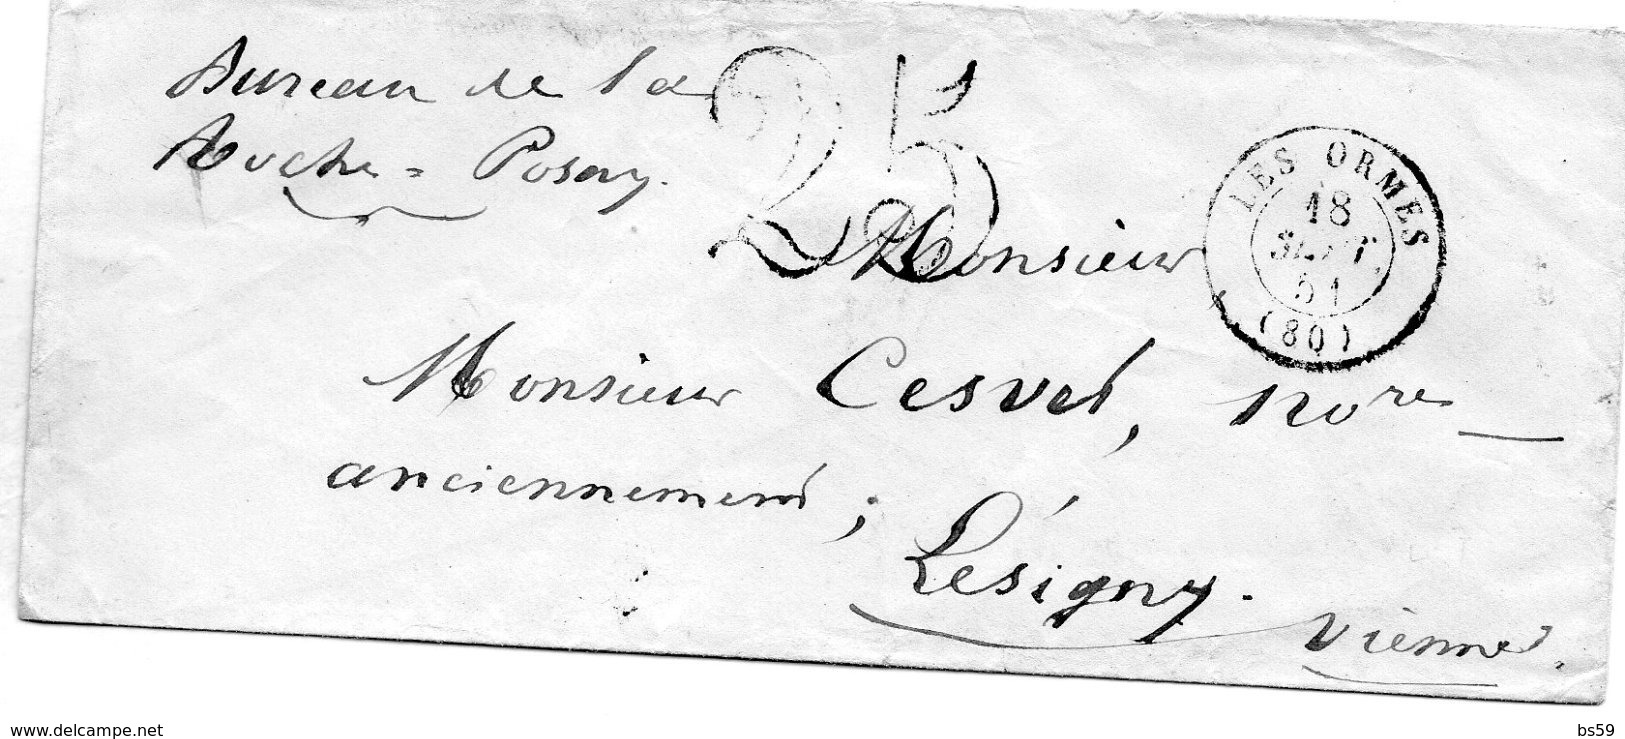 Bureau de la
Roche = Posay.
25
LES ORMES
18
SEPT.
51
(80)
Monsieur
Monsieur Cesvet, no^re
anciennement,
Lésigny.
Vienne
www.delcampe.net
bs59